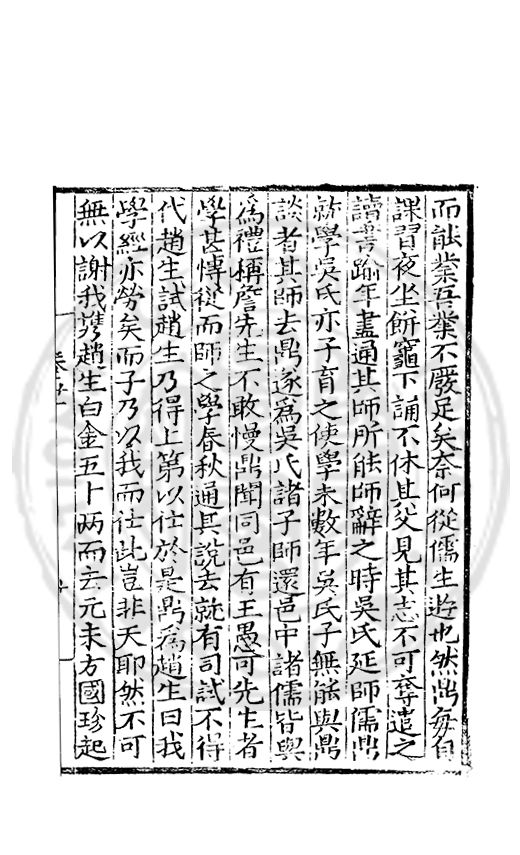 而能業吾業不廢足矣奈何從儒生遊也然鼎每自
課習夜坐餅竈下誦不休其父見其志不可奪遣之
讀書踰年盡通其師所能師辭之時吳氏延師儒鼎
就學吳氏亦子育之使學未數年吳氏子無能與鼎
談者其師去鼎遂爲吳氏諸子師還邑中諸儒皆與
爲禮稱詹先生不敢慢鼎聞同邑有王愚可先生者
學甚慱從而師之學春秋通其說去就有司試不得
代趙生試趙生乃得上第以仕於是鼎爲趙生曰我
學經亦勞矣而子乃以我而仕此豈非天耶然不可
無以謝我携趙生白金五十兩而去元末方國珍起